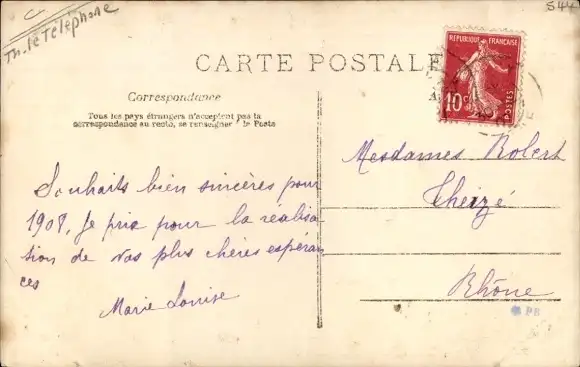 Th. le Téléphone
S44
CARTE POSTALE
REPUBLIQUE FRANÇAISE
10c
POSTES
Correspondance
Tous les pays étrangers n'acceptent pas la
correspondance au recto, se renseigner à la Poste
Souhaits bien sincères pour
1908, Je prie pour la réalisa
tion de vos plus chères espéran
ces
Marie Louise
Mesdames Robert
Theizé
Rhône
PE